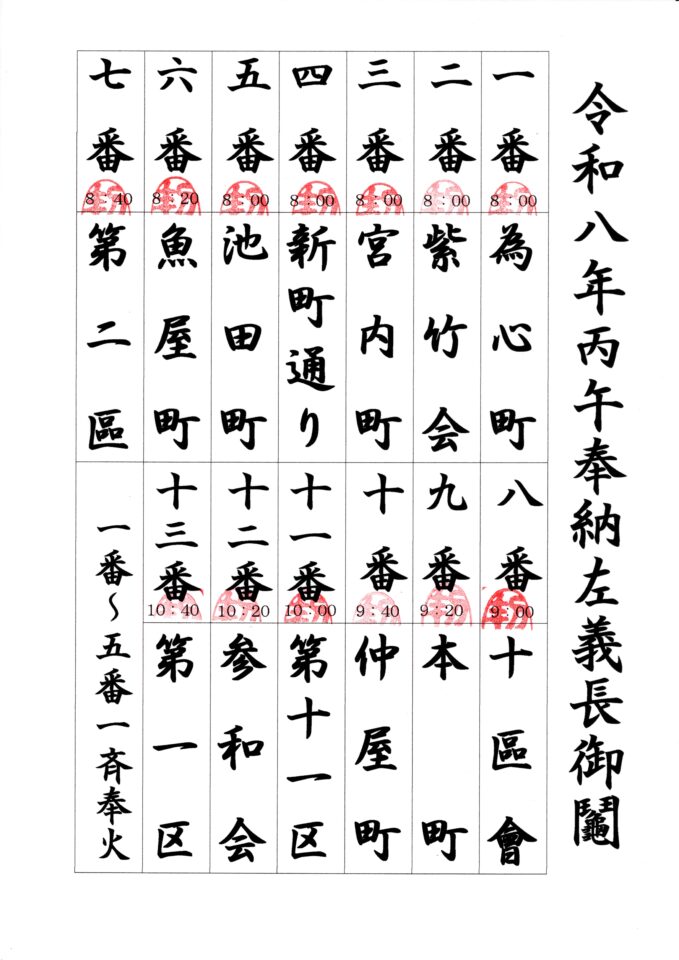 令和八年丙午奉納左義長御鬮
一番
8:00
為心町
二番
8:00
紫竹会
三番
8:00
宮内町
四番
8:00
新町通り
五番
8:00
池田町
六番
8:20
魚屋町
七番
8:40
第二區
八番
9:00
十區會
九番
9:20
本町
十番
9:40
仲屋町
十一番
10:00
第十一区
十二番
10:20
参和会
十三番
10:40
第一区
一番～五番一斉奉火